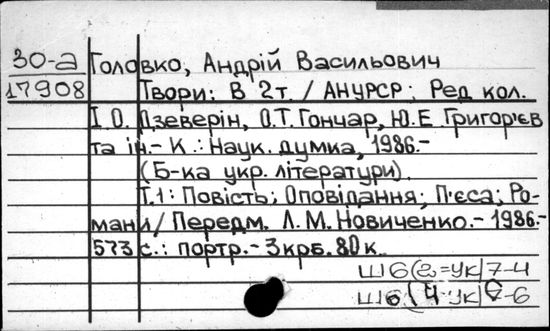 30-а Головко, Андрій Васильович
17908 Твори: В 2 т. / АНУРСР; Ред кол.
І. О. Дзеверін, О.Т. Гончар, Ю.Е. Григор'єв
та ін.- К.: Наук. думка, 1986.-
(Б-ка укр. літератури).
Т.1: Повість; Оповідання; П'єса; Ро-
мани/ Передм. Л. М. Новиченко.- 1986.-
573 с.: портр.- 3 крб. 80 к.
Ш6(2=Ук)7-4
Ш6(4-Ук) -6